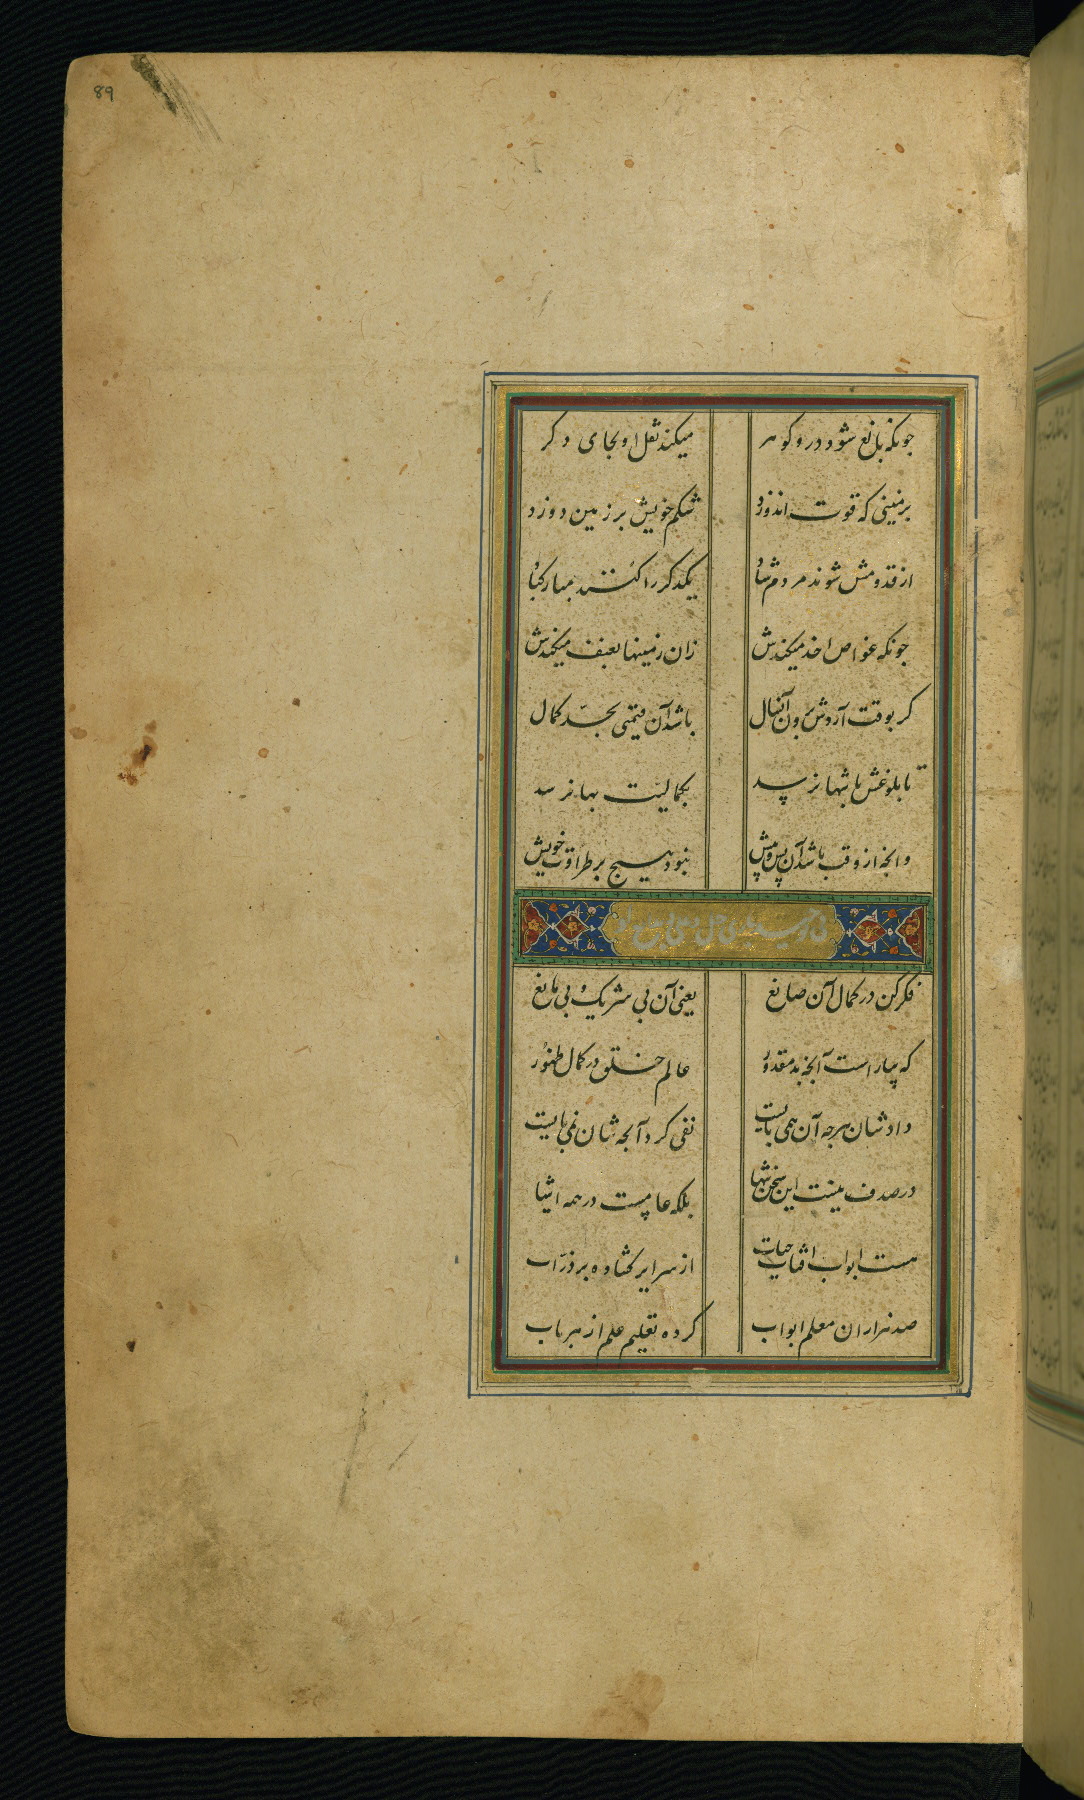 89
چونکه بالغ شود درو گوهر میکند نقل او بجای دگر
بر زمینی که قوت اندوزد شکم خویش بر زمین دوزد
از قدومش شوند مردم شاد یکدگر را کنند مبارکباد
چونکه غواص اخذ میکندش زان زمینها بعنف میکندش
گر بوقت آردش برون آنسال باشد آن قیمتی بحد کمال
تا بلوغش بانتها نرسد بکمالیت بها نرسد
وانچه از وقت باشد آن پس و پیش نبود هیچ بر طراوت خویش
فکر کن در کمال آن صانع یعنی آن بی شریک و بی مانع
که بیاراست آنچه بد مقدور عالم خلق در کمال ظهور
دادشان هرچه آن همی بایست نفی کرد آنچه شان نمی بایست
در صدف نیست این سخن تنها بلکه عامست در همه اشیا
هست ابواب اقتباب حیات از سرایر گشاده بر ذرات
صد هزاران معلم ابواب کرده تعلیم علم از هر باب